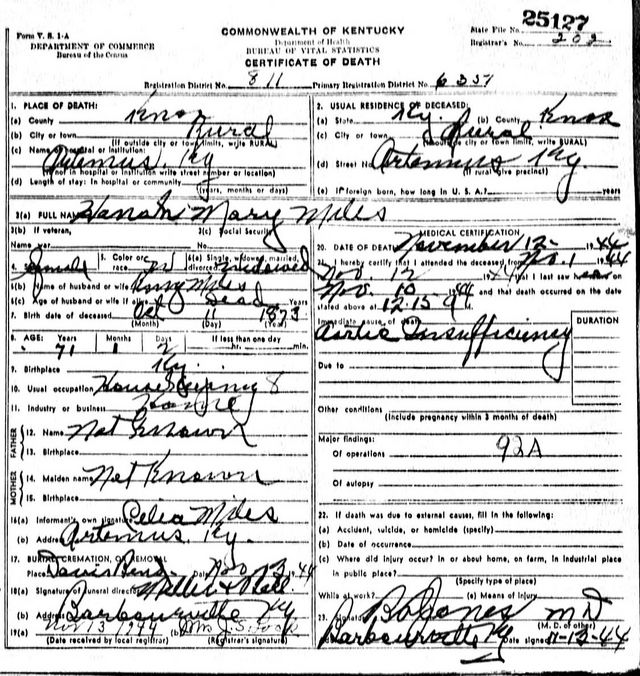 Form V. S. 1-A
DEPARTMENT OF COMMERCE
Bureau of the Census
COMMONWEALTH OF KENTUCKY
Department of Health
BUREAU OF VITAL STATISTICS
CERTIFICATE OF DEATH
25127
State File No.
Registrar's No. 202
Registration District No. 811 Primary Registration District No. 6351
1. PLACE OF DEATH:
(a) County Knox
(b) City or town Rural
(If outside city or town limits, write RURAL)
(c) Name of hospital or institution:
Artemus, Ky
(If not in hospital or institution write street number or location)
(d) Length of stay: In hospital or community
(years, months or days)
2. USUAL RESIDENCE OF DECEASED:
(a) State Ky. (b) County Knox
(c) City or town Rural
(If outside city or town limits, write RURAL)
(d) Street No. Artemus Ky.
(If rural give precinct)
(e) If foreign born, how long in U. S. A.? years
3(a) FULL NAME Mary Miles
3(b) If veteran,
Name war
3(c) Social Security
No.
4. Female
5. Color or race W
6(a) Single, widowed, married, divorced Widowed
6(b) Name of husband or wife Miles
6(c) Age of husband or wife if alive Dead Years
7. Birth date of deceased Oct 11 1873
(Month) (Day) (Year)
8. AGE: Years Months Days If less than one day
71 1 2 hr. min.
9. Birthplace Ky.
10. Usual occupation House
11. Industry or business Home
FATHER
12. Name Not Known
13. Birthplace
MOTHER
14. Maiden name Not Known
15. Birthplace
16(a) Informant's own signature Celia Miles
(b) Address Artemus, Ky.
17. BURIAL, CREMATION, OR REMOVAL
Place Davis Bend Date Nov 13, 44
18(a) Signature of funeral director
(b) Address Barbourville Ky
19(a) Nov 13 1944 (b) Mrs J. S.
(Date received by local registrar) (Registrar's signature)
MEDICAL CERTIFICATION
20. DATE OF DEATH November 12- 1944
21. I hereby certify that I attended the deceased from Nov. 1 1944
Nov. 12 1944 that I last saw
Nov. 10 1944 and that death occurred on the date
stated above at 12:15
Immediate cause of death
Aortic Insufficiency
DURATION
Due to
Other conditions
(Include pregnancy within 3 months of death)
Major findings:
Of operations 92A
Of autopsy
22. If death was due to external causes, fill in the following:
(a) Accident, suicide, or homicide (specify)
(b) Date of occurrence
(c) Where did injury occur? In or about home, on farm, in industrial place
in public place?
(Specify type of place)
While at work? (e) Means of injury
23. Signature Jones M D
(M. D. or other)
Barbourville, Ky Date signed 11-13-44